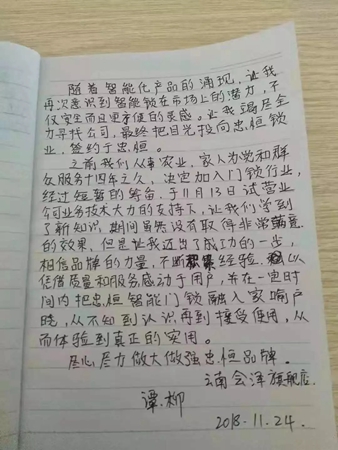 随着智能化产品的涌现,让我
再次意识到智能锁在市场上的潜力,不
仅安全而且更方便的灵感。让我竭尽全
力寻找公司,最终把目光投向忠恒锁
业,签约于忠恒。
之前我们从事农业,家人为党和群
众服务十四年之久,决定加入门锁行业,
经过短暂的筹备,于11月13日试营业
公司业务技术大力的支持下,让我们学到
了新知识,期间虽然没有取得非常满意
的效果,但是让我迈出了成功的一步,
相信品牌的力量,不断积累经验,以
信誉质量和服务感动于用户,并在一定时
间内把忠恒智能门锁融入家喻户
晓,从不知到认识再到接受使用,从
而体验到真正的实用。
尽心尽力做大做强忠恒品牌。
云南会泽旗舰店
谭柳
2018.11.24.